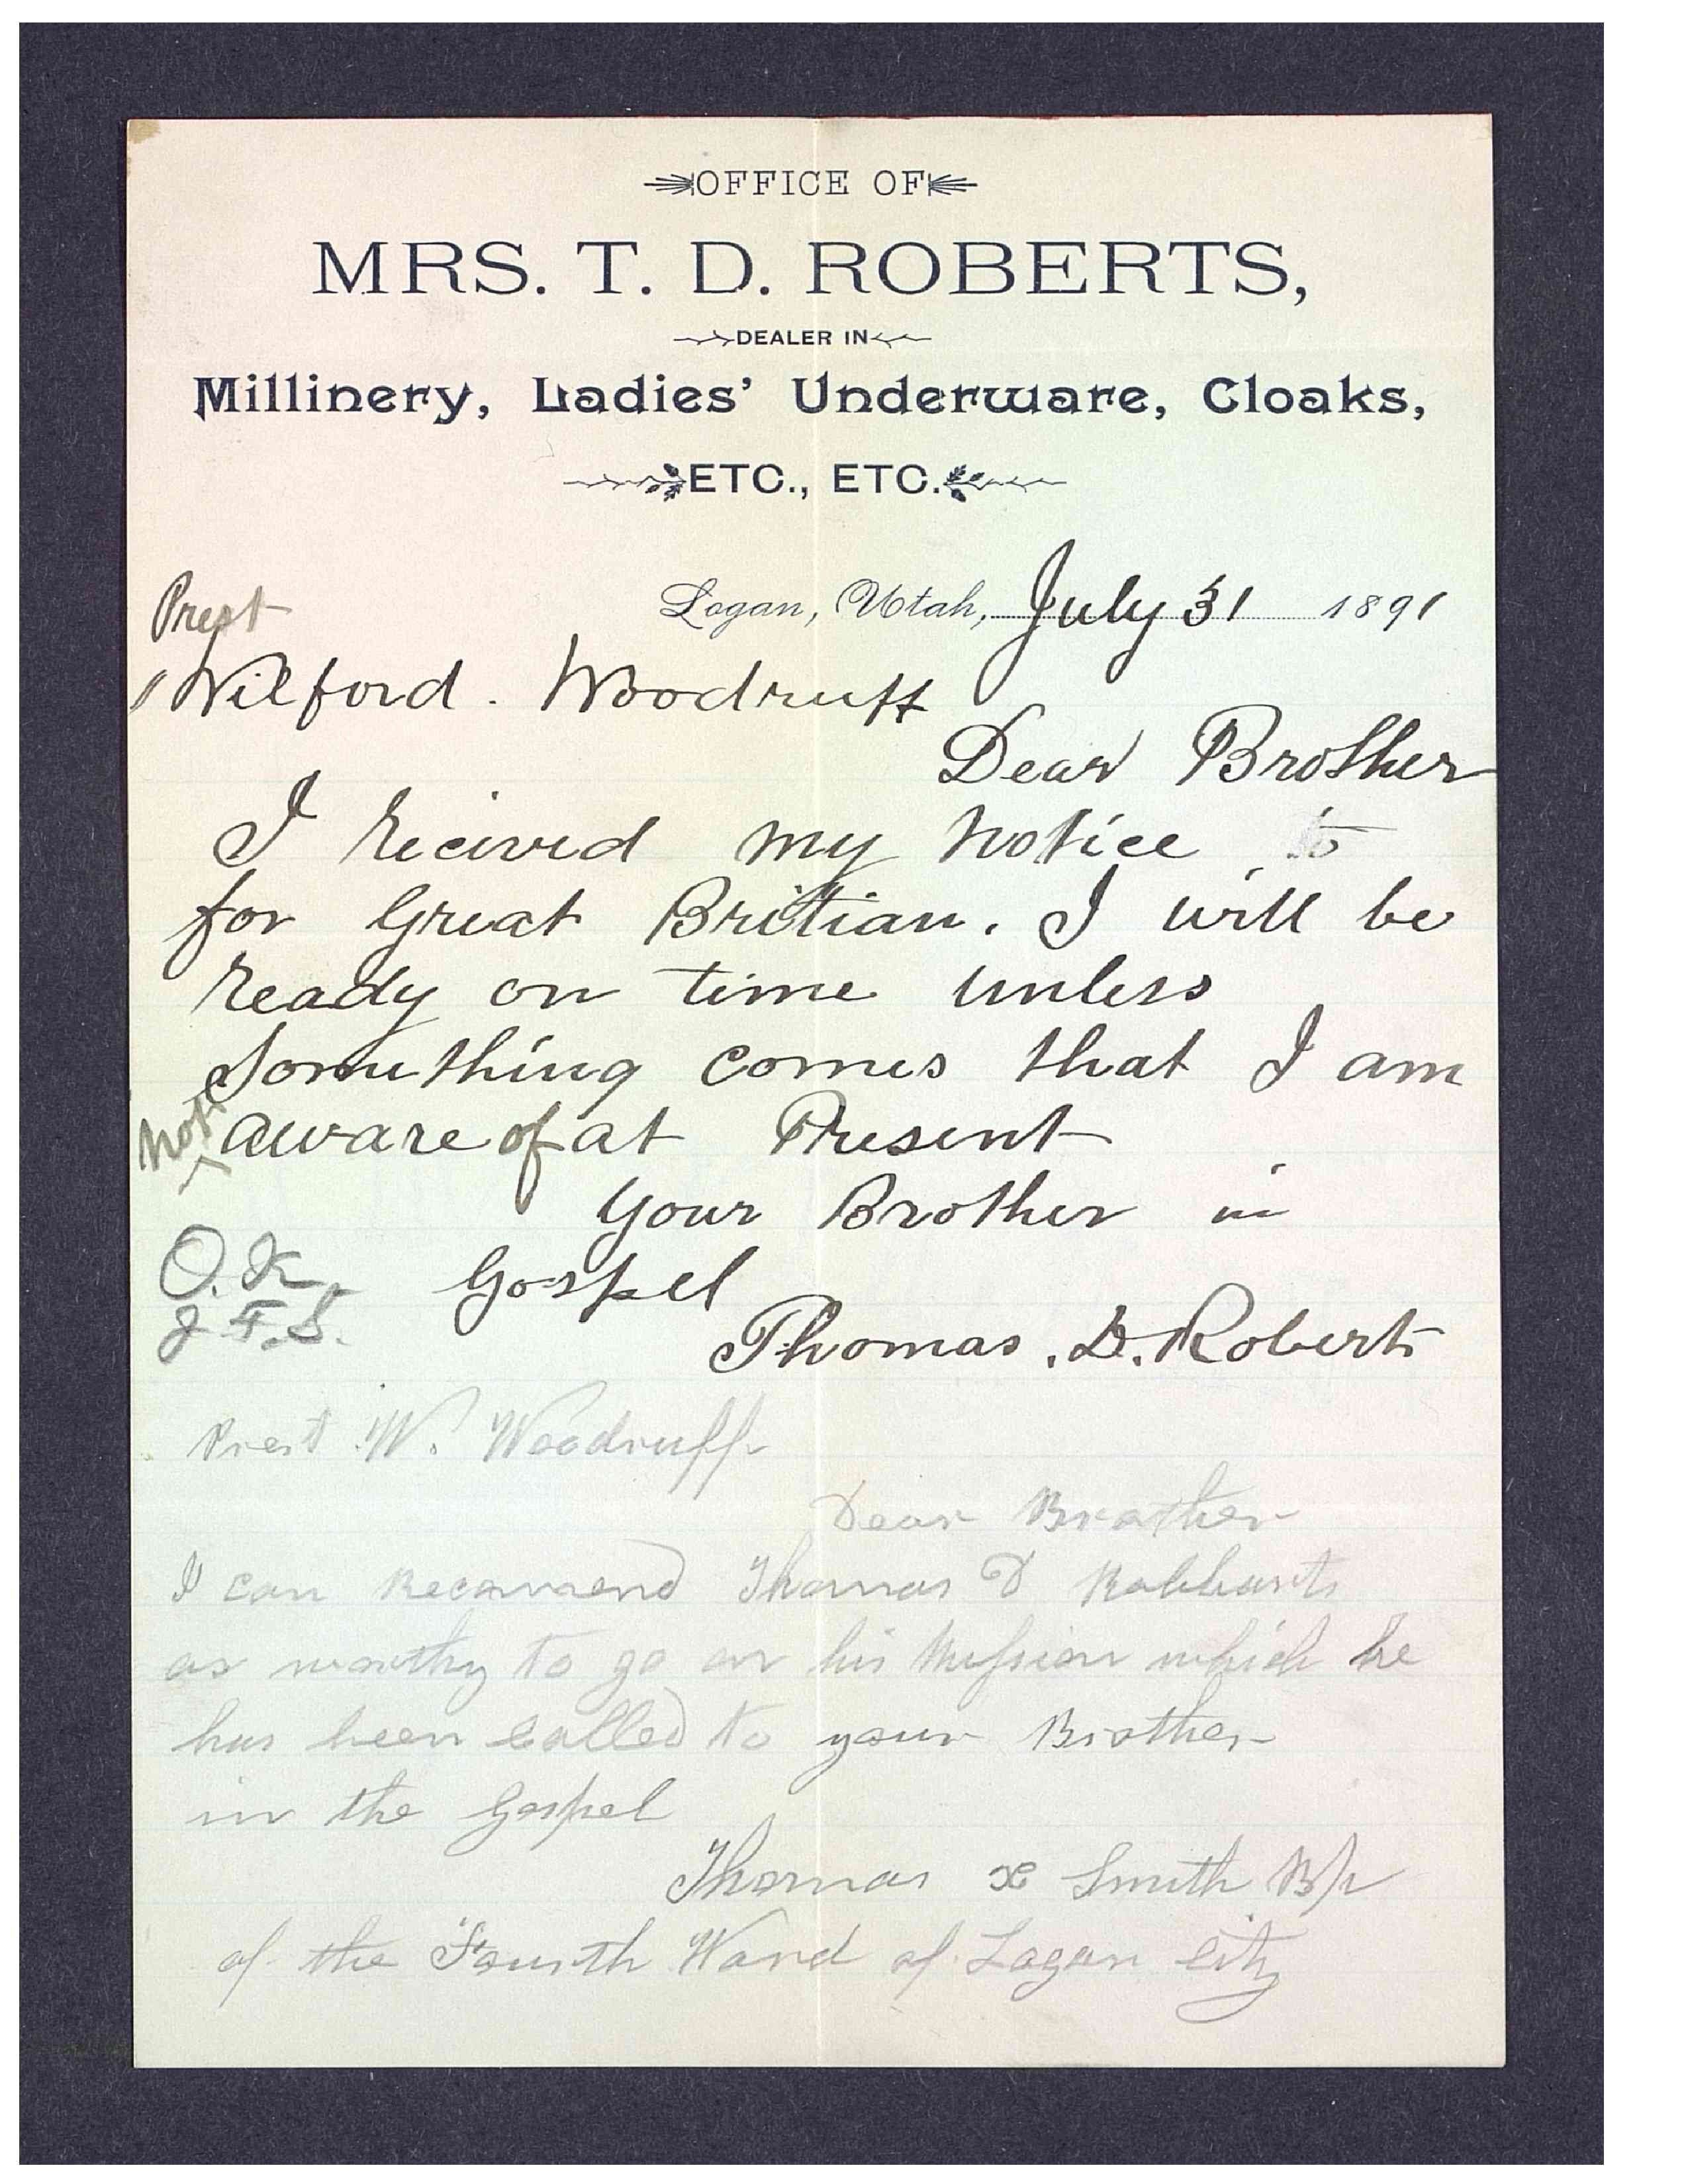 OFFICE OF
MRS. T. D. ROBERTS,
DEALER IN
Millinery, Ladies' Underware, Cloaks,
ETC., ETC.
Logan, Utah, July 31 1891
Prest
Wilford. Woodruff
Dear Brother
I recived my notice to
for Great Britian. I will be
ready on time unless
Something comes that I am
not aware of at Present
Your Brother in
Gospel
Thomas. D. Roberts
O.K.
J. F. S.
Prest W. Woodruff
Dear Brother
I can Recommend Thomas D
as worthy to go on his Mission which he
has been called to your Brother
in the Gospel
Thomas X Smith Bp
of the Fourth Ward of Logan City